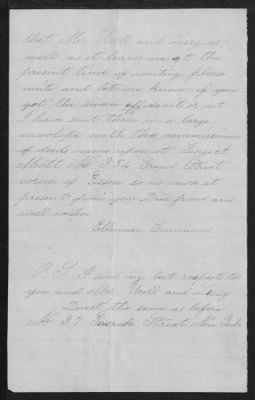 that Mr Urell and Lissy is
well as it leaves me at the
present time of writing please
write and lete me know if you
got the swon affidavits or not
I have sent them in a large
envelope with the commissioner
of deeds name upon at
Mott No 354 Grand Street
corner of Essex so no more at
present from your Dear friend and
well wisher
P.S. I send my best respects to
you and Mr Urell and Lissy
Direct the same as before
No 37 Street New York